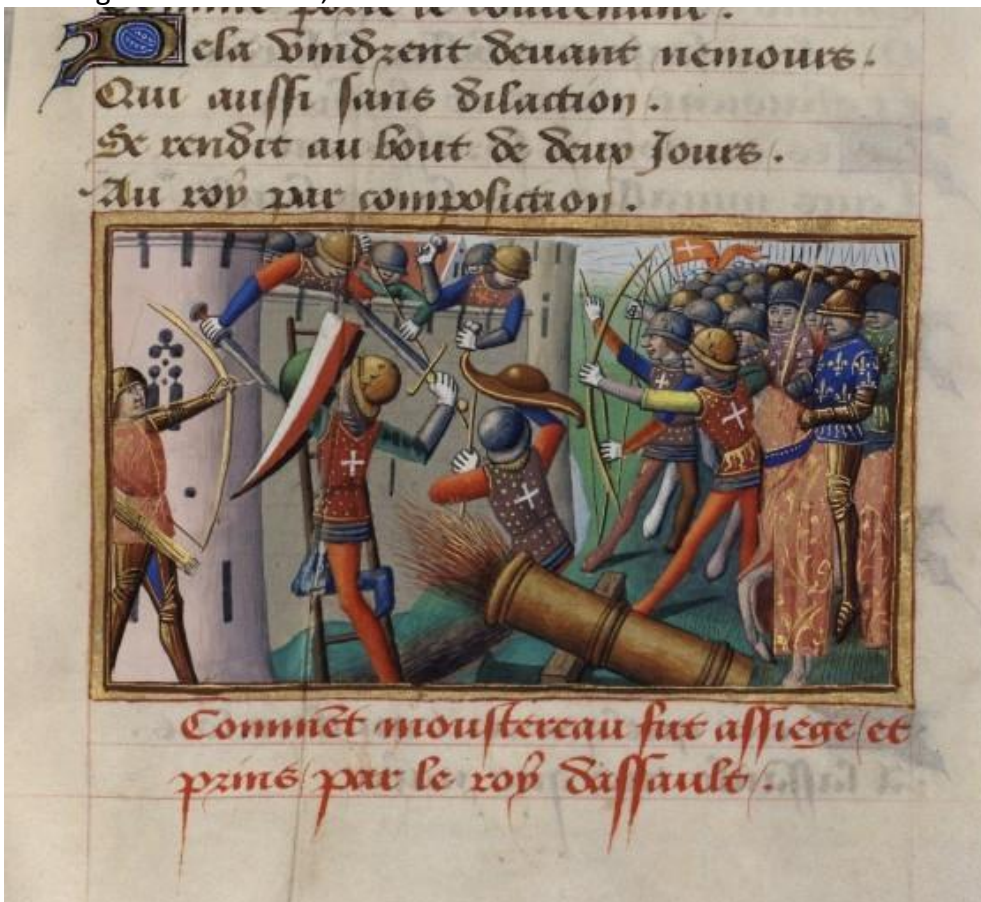 Comme porte le contenant .
Dela vindrent deuant nemours .
Qui aussi sans dilaction .
Se rendit au bout de deux Jours .
Au roy par composiction .
Commēt moustereau fut assiege / et
prins / par le roy dassault / .